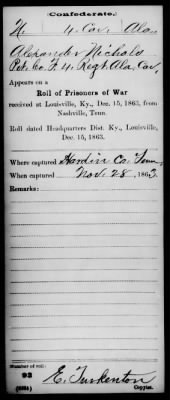 Confederate.
N. 4 Cav. Ala.
Alexander Nichals
Pvt. Co. F. 4. Regt. Ala. Cav.
Appears on a
Roll of Prisoners of War
received at Louisville, Ky., Dec. 15, 1863, from
Nashville, Tenn.
Roll dated Headquarters Dist. Ky., Louisville,
Dec. 15, 1863.
Where captured Hardin Co. Tenn
When captured Nov. 28, 1863.
Remarks:
Number of roll:
93
E. Turkenton
Copyist.